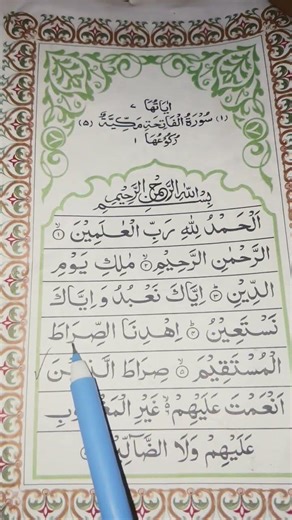 اٰیَاتُهَا ۷
(۱) سُوْرَةُ الْفَاتِحَةِ مَكِّيَّةٌ (۵)
رُكُوْعُهَا ۱
بِسْمِ اللّٰهِ الرَّحْمٰنِ الرَّحِيْمِ
اَلْحَمْدُ لِلّٰهِ رَبِّ الْعٰلَمِيْنَ ۙ﴿۱﴾
الرَّحْمٰنِ الرَّحِيْمِ ۙ﴿۲﴾ مٰلِكِ يَوْمِ
الدِّيْنِ ﴿۳﴾ اِيَّاكَ نَعْبُدُ وَاِيَّاكَ
نَسْتَعِيْنُ ﴿۴﴾ اِهْدِنَا الصِّرَاطَ
الْمُسْتَقِيْمَ ۙ﴿۵﴾ صِرَاطَ
اَنْعَمْتَ عَلَيْهِمْ ۙ۬ غَيْرِ
عَلَيْهِمْ وَلَا الضَّآلِّيْنَ